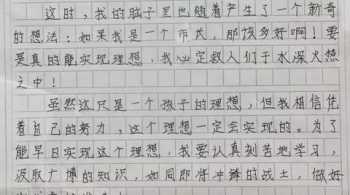 这时，我的肚子里也随着产生了一个新奇
的想法：如果我是一个市大，那该多好啊！要
是真的能实现理想，我必定救人们于水深火热
之中！
虽然这只是一个孩子的理想，但我相信凭
着自己的努力，这个理想一定会实现的。为了
能早日实现这个理想，我要认真刻苦地学习，
汲取广博的知识，如同即将冲锋的战士，做好